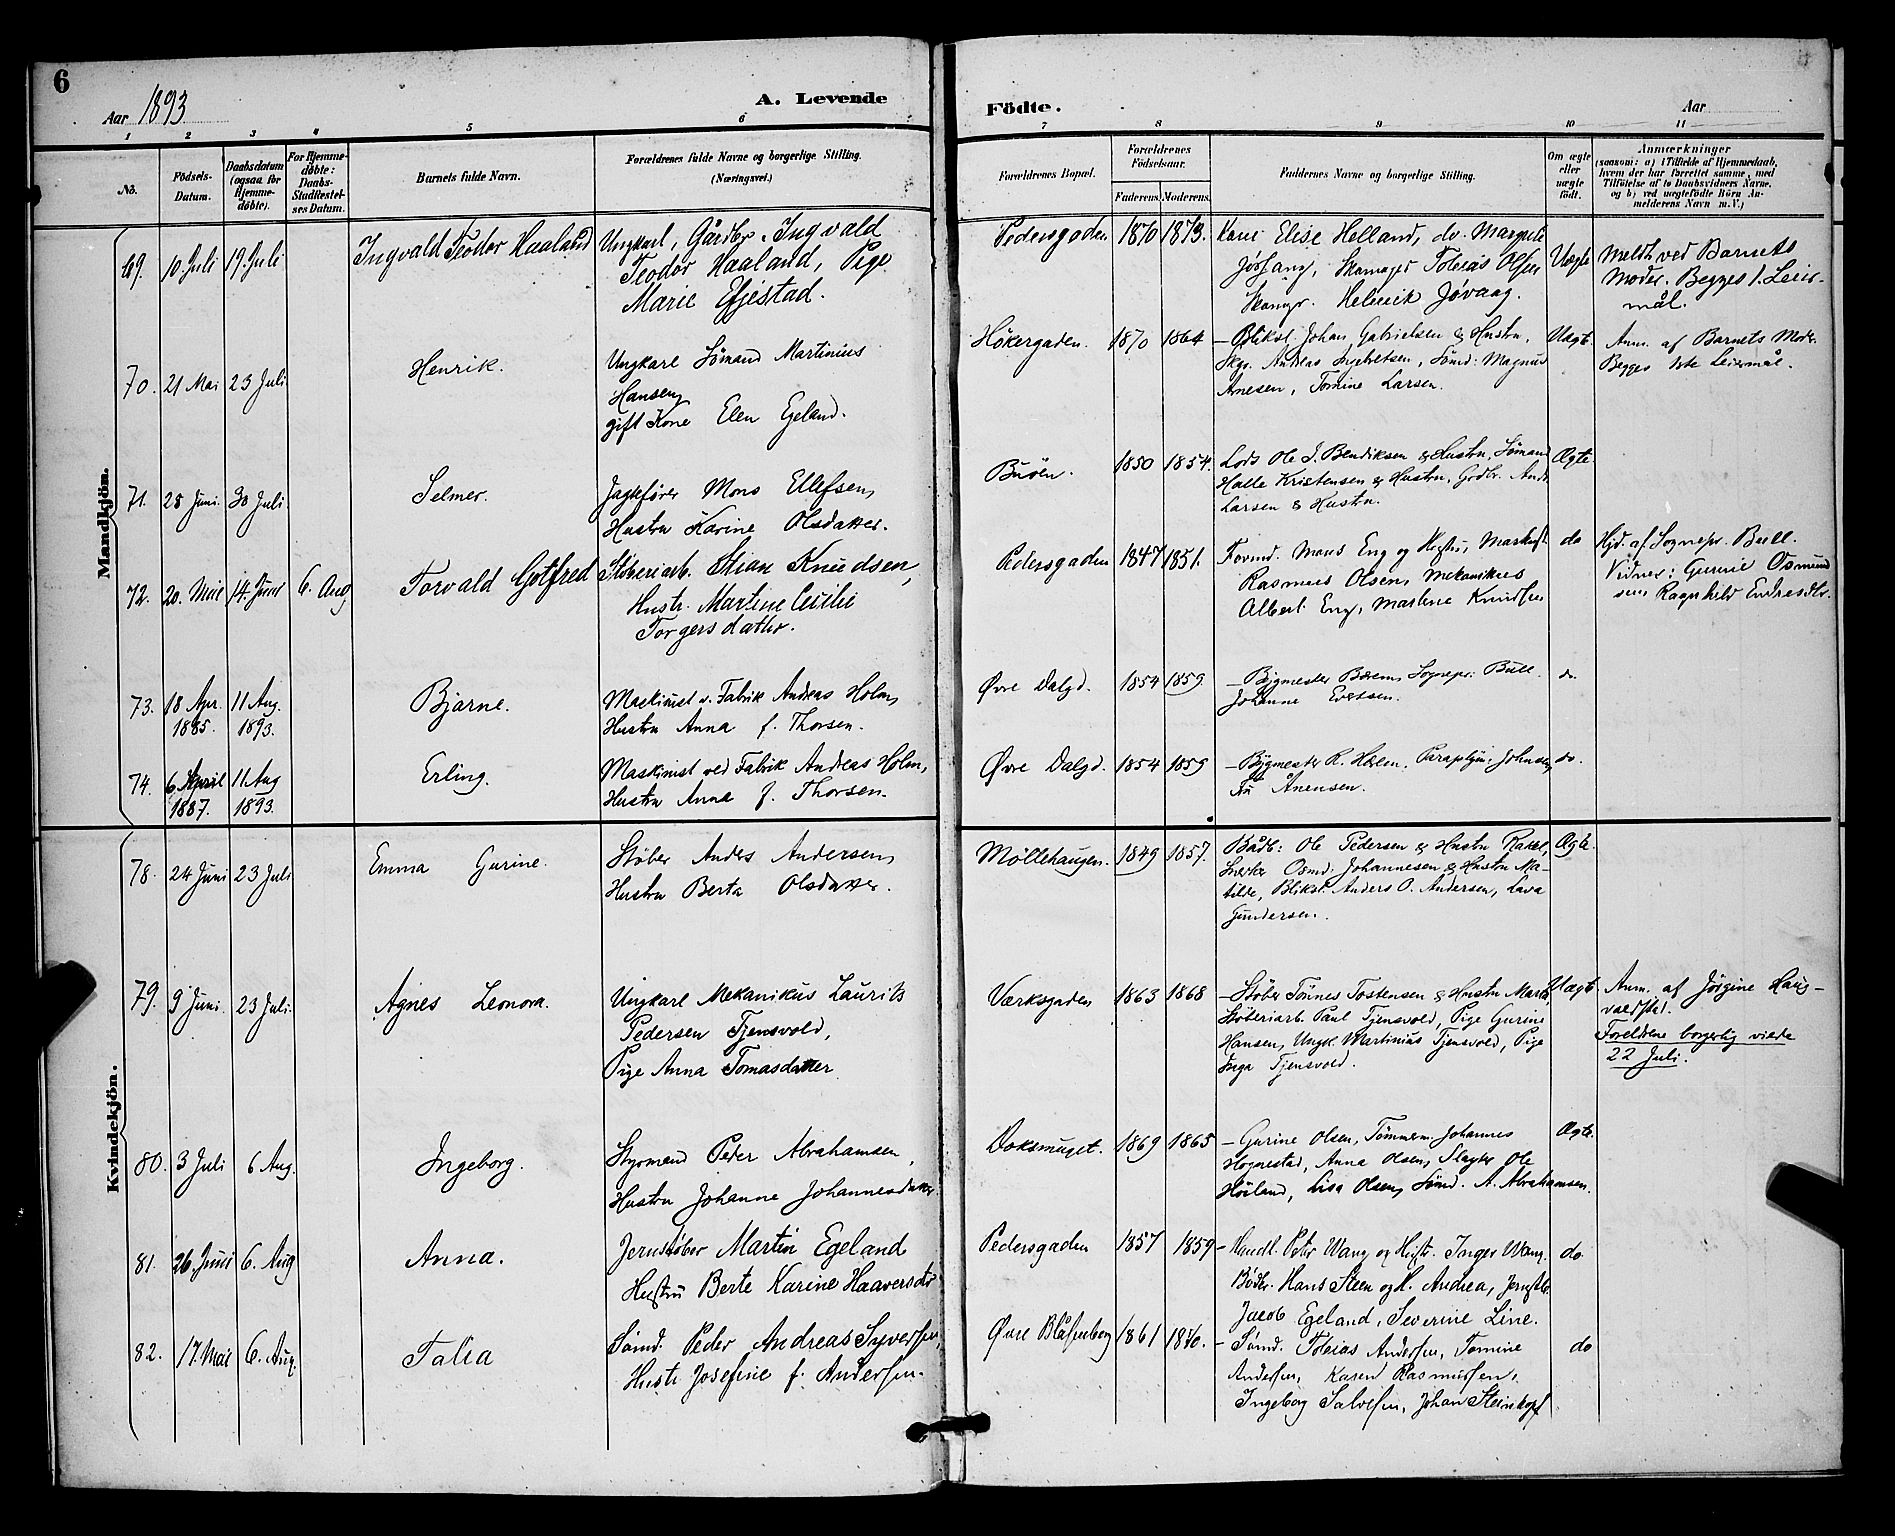 6
Aar 1893
A. Levende
Födte.
Aar
1 2 3 4 5 6 7 8 9 10 11
No.
Födsels-
Datum.
Daabsdatum
(ogsaa for
Hjemme-
döbte).
For Hjemme-
döbte:
Daabs-
Stadfæstel-
ses Datum.
Barnets fulde Navn.
Forældrenes fulde Navne og borgerlige Stilling.
(Næringsvei.)
Forældrenes Bopæl.
Forældrenes
Födselsaar.
Faderens. Moderens.
Faddernes Navne og borgerlige Stilling.
Om ægte
eller
uægte
födt.
Anmærkninger
(saasom: a) i Tilfælde af Hjemmedaab,
hvem der har forrettet samme, med
Tilföielse af to Daabsvidners Navne.
og b) ved uægtefödte Börn An-
melderens Navn m.V.)
Mandkjön.
69. 10 Juli 19. Juli
Ingvald Teodor Haaland
Ungkarl, Gårdbr. Ingvald
Teodor Haaland, Pige
Marie Efjestad.
Pedersgaden 1870 1873.
Kone Elise Helland, do. Margrete
Jössang, Skomager Toleias Olsen
Skomgr. Helmik Jövaag.
Uægte
Meldt ved Barnets
Moder. Begges 1. Leier-
mål.
70. 21 Mai 23 Juli
Henrik.
Ungkarl Sömand Martinius
Hansen,
gift Kone Elen Egeland.
Hökergaden. 1870 1864
– Bliksl. Johan Gabrielsen & Hustru,
Skgr. Andreas Ingebretsen, Sömd: Magnus
Arnesen, Tomine Larsen.
Uægt.
Anm. af Barnets Moder.
Begges 1ste Leiermål.
71. 25 Juni. 30 Juli
Selmer.
Jagtefører Mons Ellefsen,
Hustru Karine Olsdatter.
Buöen. 1850 1854.
Lods Ole J. Bendiksen & Hustru, Sömand
Halle Kristensen & Hustru, Grdbr. Andr.
Larsen & Hustru.
Ægte
72. 20. Mai 14. Juni 6. Aug
Torvald Gotfred
Stöberiarb. Stian Knudsen,
Hustr. Martine Cecilie
Torgersdatter.
Pedersgaden 1847 1851.
Formd. Mons Eng og Hustru,
Rasmus Olsen, Mekanikus
Albert Eng, Martine Knudsen
do
Hjd. af Sognepr. Bull.
Vidner: Gurine Osmund
sen, Ragnhild Endresdtr.
73. 18 Apr. 11 Aug.
1885. 1893.
Bjarne.
Maskinist v. Fabrik Andreas Holm,
Hustru Anna f. Thorsen.
Øvre Dalgd. 1854 1859
– Bygmester Sognepr. Bull.
Johanne Evertsen.
do.
74. 6 April 11 Aug
1887. 1893.
Erling.
Maskinist ved Fabrik Andreas Holm,
Hustru Anna f. Thorsen.
Øvre Dalgd. 1854 1859
– Bygmester R. Johnsen,
Fru Ånensen.
do.
Kvindekjön.
78. 24 Juni 23 Juli
Emma Gurine.
Stöber Anders Andersen,
Hustru Berta Olsdatter.
Möllehaugen. 1849 1857.
Bådb: Ole Pedersen & Hustru Rakel,
Snedker Osmd: Johannesen & Hustru Ma-
tilde, Blikst. Anders O. Andersen, Lava
Gundersen.
Ægte.
79. 9 Juni 23 Juli.
Agnes Leonora.
Ungkarl Mekanikus Laurits
Pedersen Tjensvold,
Pige Anna Tomasdatter
Værksgaden 1863 1868
– Stöber Tönnes Tostensen & Hustru Marta,
Stöberiarb. Paul Tjensvold, Pige Gurine
Hansen, Ungk. Martinius Tjensvold, Pige
Inga Tjensvold.
Uægt.
Anm. af Jörgine Haug-
valdstad.
Foreldrene borgerlig viede
22 Juli.
80. 3 Juli 6 Aug.
Ingeborg.
Styrmand Peder Abrahamsen,
Hustru Johanne Johannesdatter.
Doksmuget. 1869 1865
– Gurine Olsen, Tömmerm. Johannes
Hognestad, Anna Olsen, Slagter Ole
Höiland, Lisa Olsen, Sömd. A. Abrahamsen.
Ægte.
81. 26. Juni 6. Aug
Anna.
Jernstöber Martin Egeland
Hustru Berte Karine Haaversdtr
Pedersgaden 1857 1859
– Handl. Peter Wang og Hustr. Inger Wang.
Böder. Hans Steen og H. Andrea, Jernstbr.
Jacob Egeland, Severine Line.
do.
82. 17. Mai 6. Aug.
Talia
Sömd. Peder Andreas Syversen,
Hustr Josefine f. Andersen.
Øvre Blåsenborg 1861 1870.
– Sömd. Toleias Andersen, Tomine
Andersen, Karen Rasmussen,
Ingeborg Salvesen, Johan Steinkopf
do